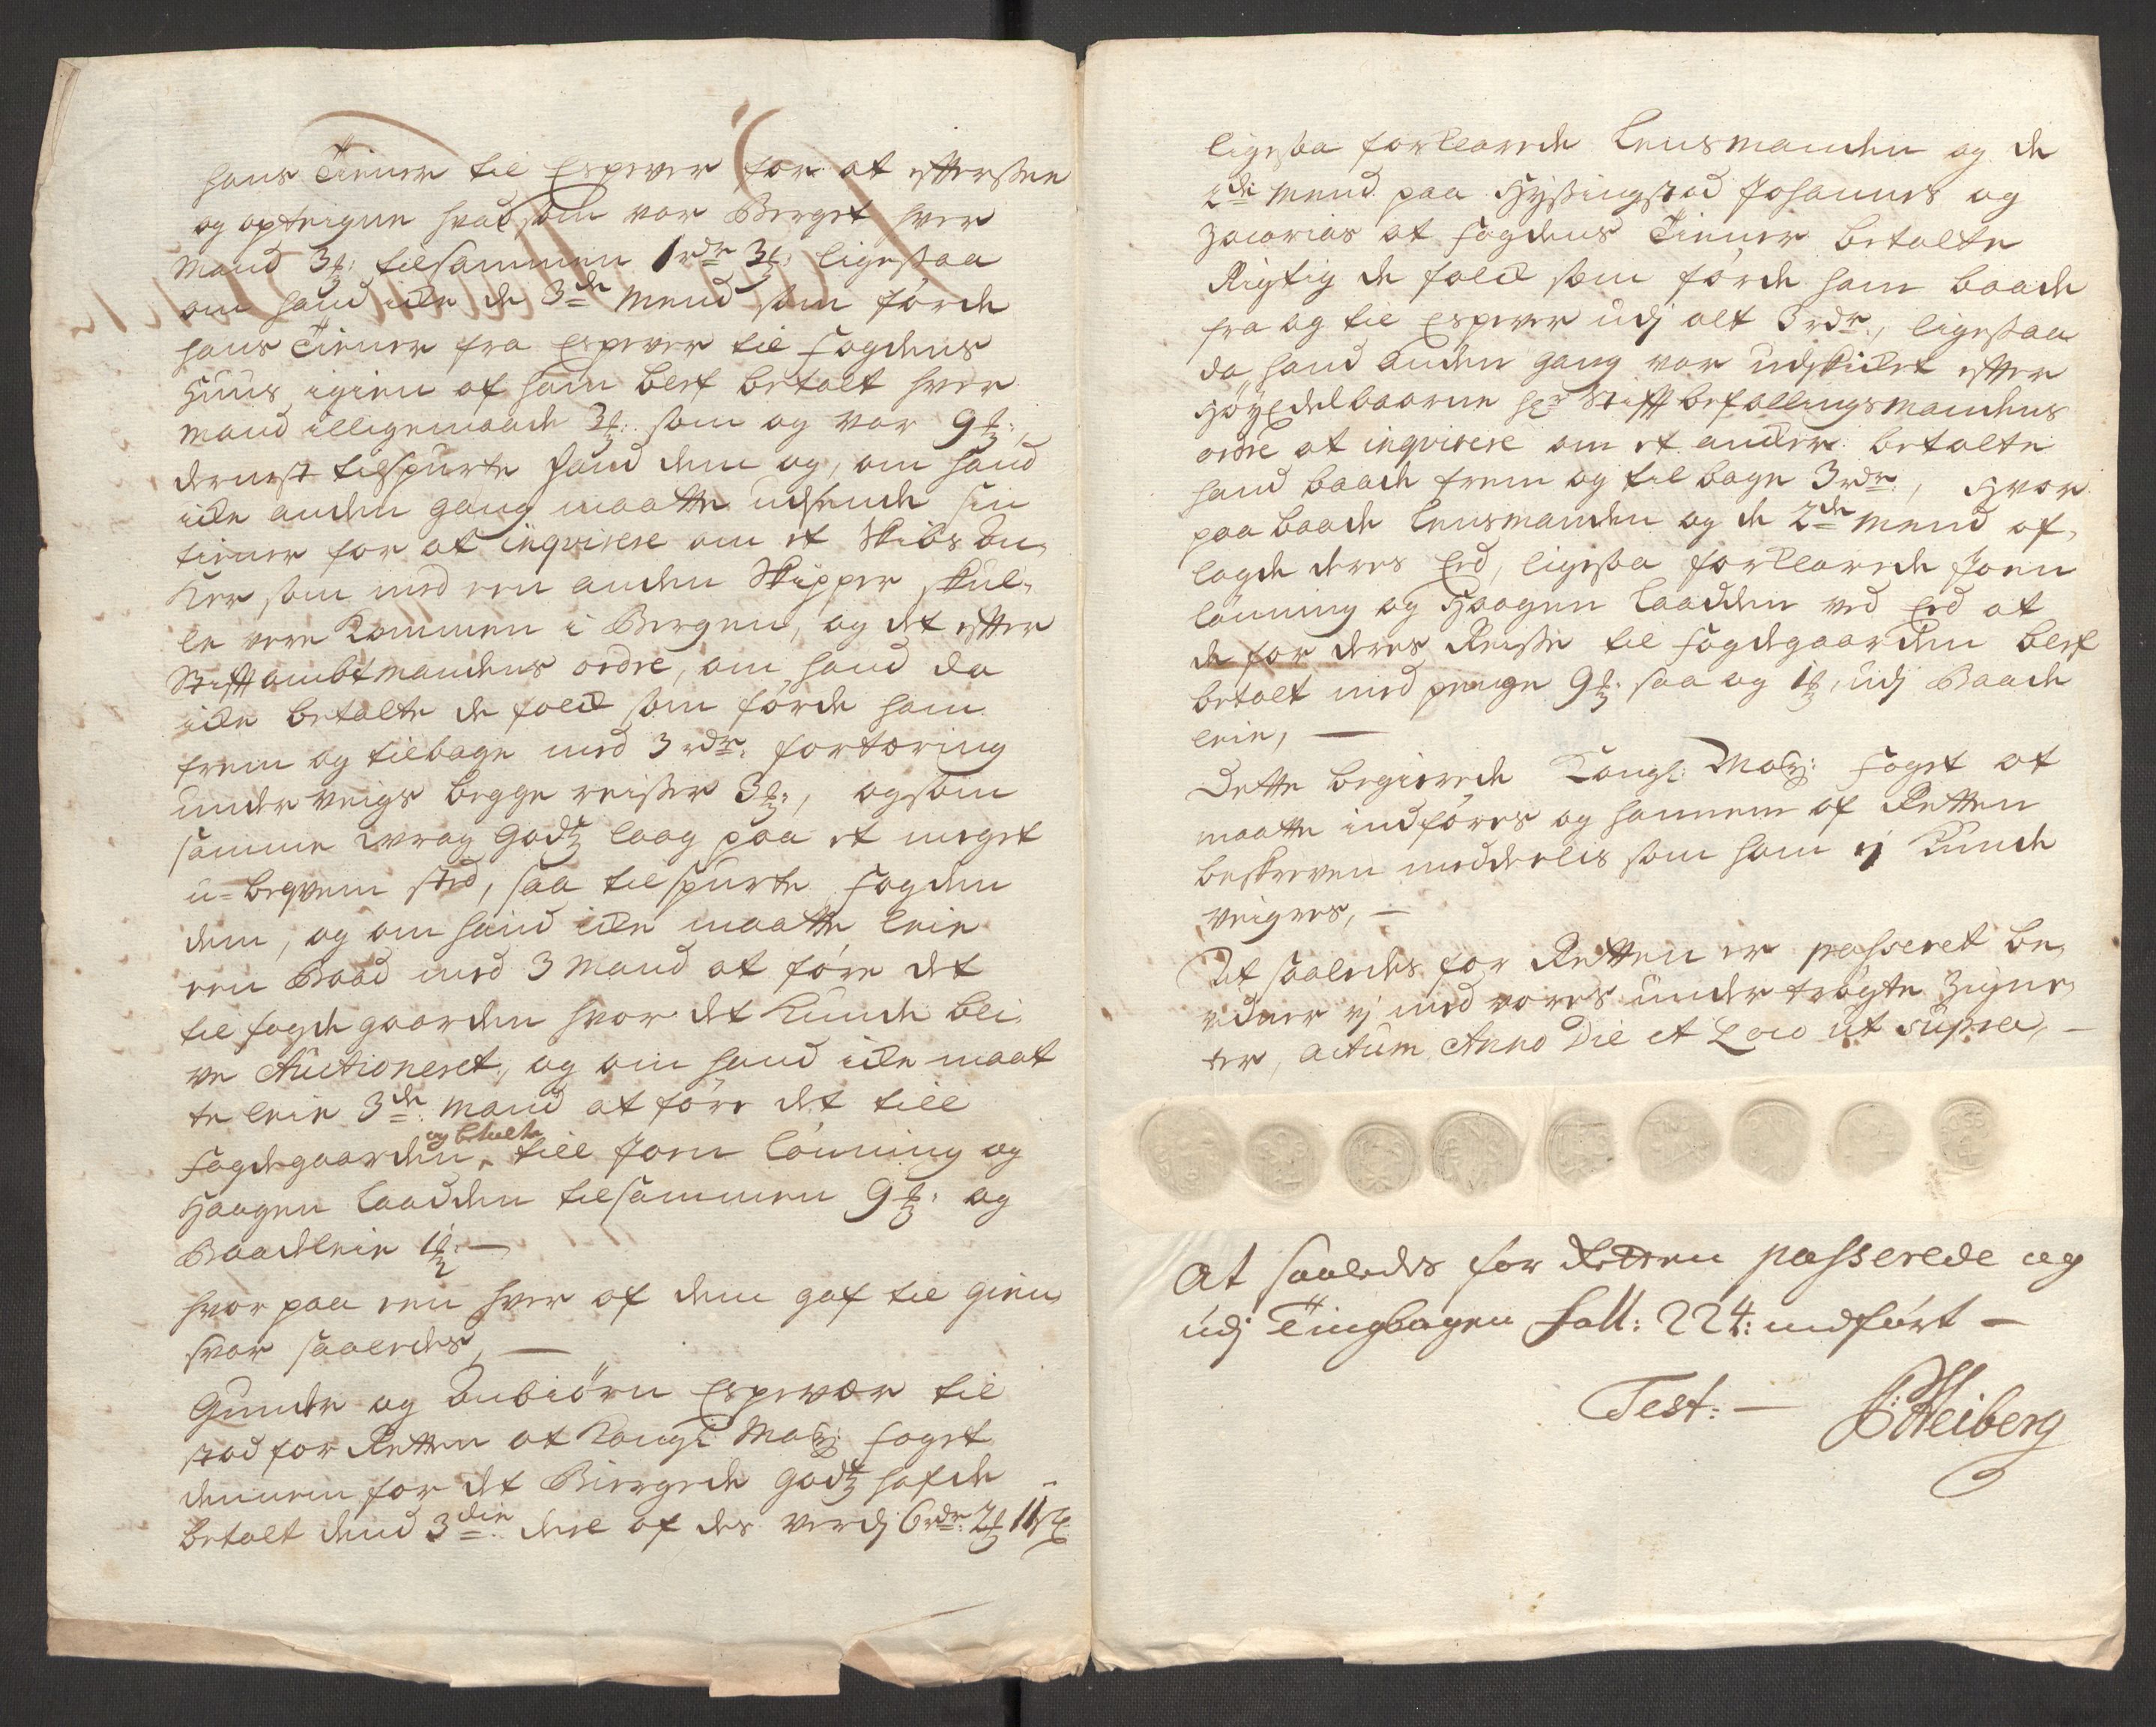 hans Tiener til Espever for at efftersee
og opteigne hvad som var Berget hver
Mand 3 ₰: tilsammen 1 rdr 3 ₰: ligesaa
om hand icke de 3de Mend som förde
hans Tiener fra Espever til Fogdens
Huus igien af ham blef betalt hver
Mand illigemaade 3 ₰: som og var 9 ₰:,
dernest tilspurte hand dem og, om hand
icke anden gang maatte udsende sin
tiener for at inqvirere om et Skibs An-
ker som med een anden Skipper skul-
le vere kommen i Bergen, og det effter
Stifftambtmandens ordre, om hand da
icke betalte de folck som förde ham
frem og tilbage med 3 rdr: fortæring
under veigs begge reiser 3 ₰:, og som
samme Vrag Godtz laag paa et meget
u-beqvem sted, saa tilspurte Fogden
dem, og om hand icke maatte leie
een Baad med 3 Mand at före det
til fogdegaarden hvor det kunde bli-
ve Auctioneret, og om hand icke maat
te leie 3de Mand at före det till
Fogdegaarden, og betalte till Joen Lönning og
Haagen Laadden tilsammen 9 ₰: og
Baadleie 1 ₰: —
hvor paa een hver af dem gaf til gien-
svar saaledes, —
Gunder og Anbiörn Espevær til
stod for Retten at Kongl: May: Foget
dennem for det Biergede Godtz hafde
betalt dend 3die deel af des verdj 6 rdr: 2 ₰ 11 s

ligesaa forklarede Lensmanden og de
2de Mend paa Hysingstad Johannes og
Zacarias at Fogdens Tiener betalte
Rigtig de folck som förde ham baade
fra og til Espever udj alt 3 rdr:, ligesaa
da hand anden gang var udskicket effter
HöyEdelbaarne Hr Stifftbefallingsmandens
ordre at inqvirere om et ancker betalte
hand baade frem og tilbage 3 rdr:, hvor
paa baade Lensmanden og de 2de Mend af-
lagde deres Eed, ligesaa forklarede Joen
Lönning og Haagen Laadden ved Eed at
de for deres Reisse til fogdegaarden blef
betalt med penge 9 ₰: saa og 1 ₰, udj Baade
leie, —
Dette begierede Kongl: May: Foget at
maatte indföres og hannem af Retten
beskreven meddeelis som ham ej kunde
veigres, —
At saaledes for Retten er passeret be-
vidner vj med vores undertrögte Zigne-
ter, Actum Anno Die et Loco ut supra, —
At saaledes for Retten passerede og
udj Tingbogen Foll: 224: indfört —
Test: — Heiberg